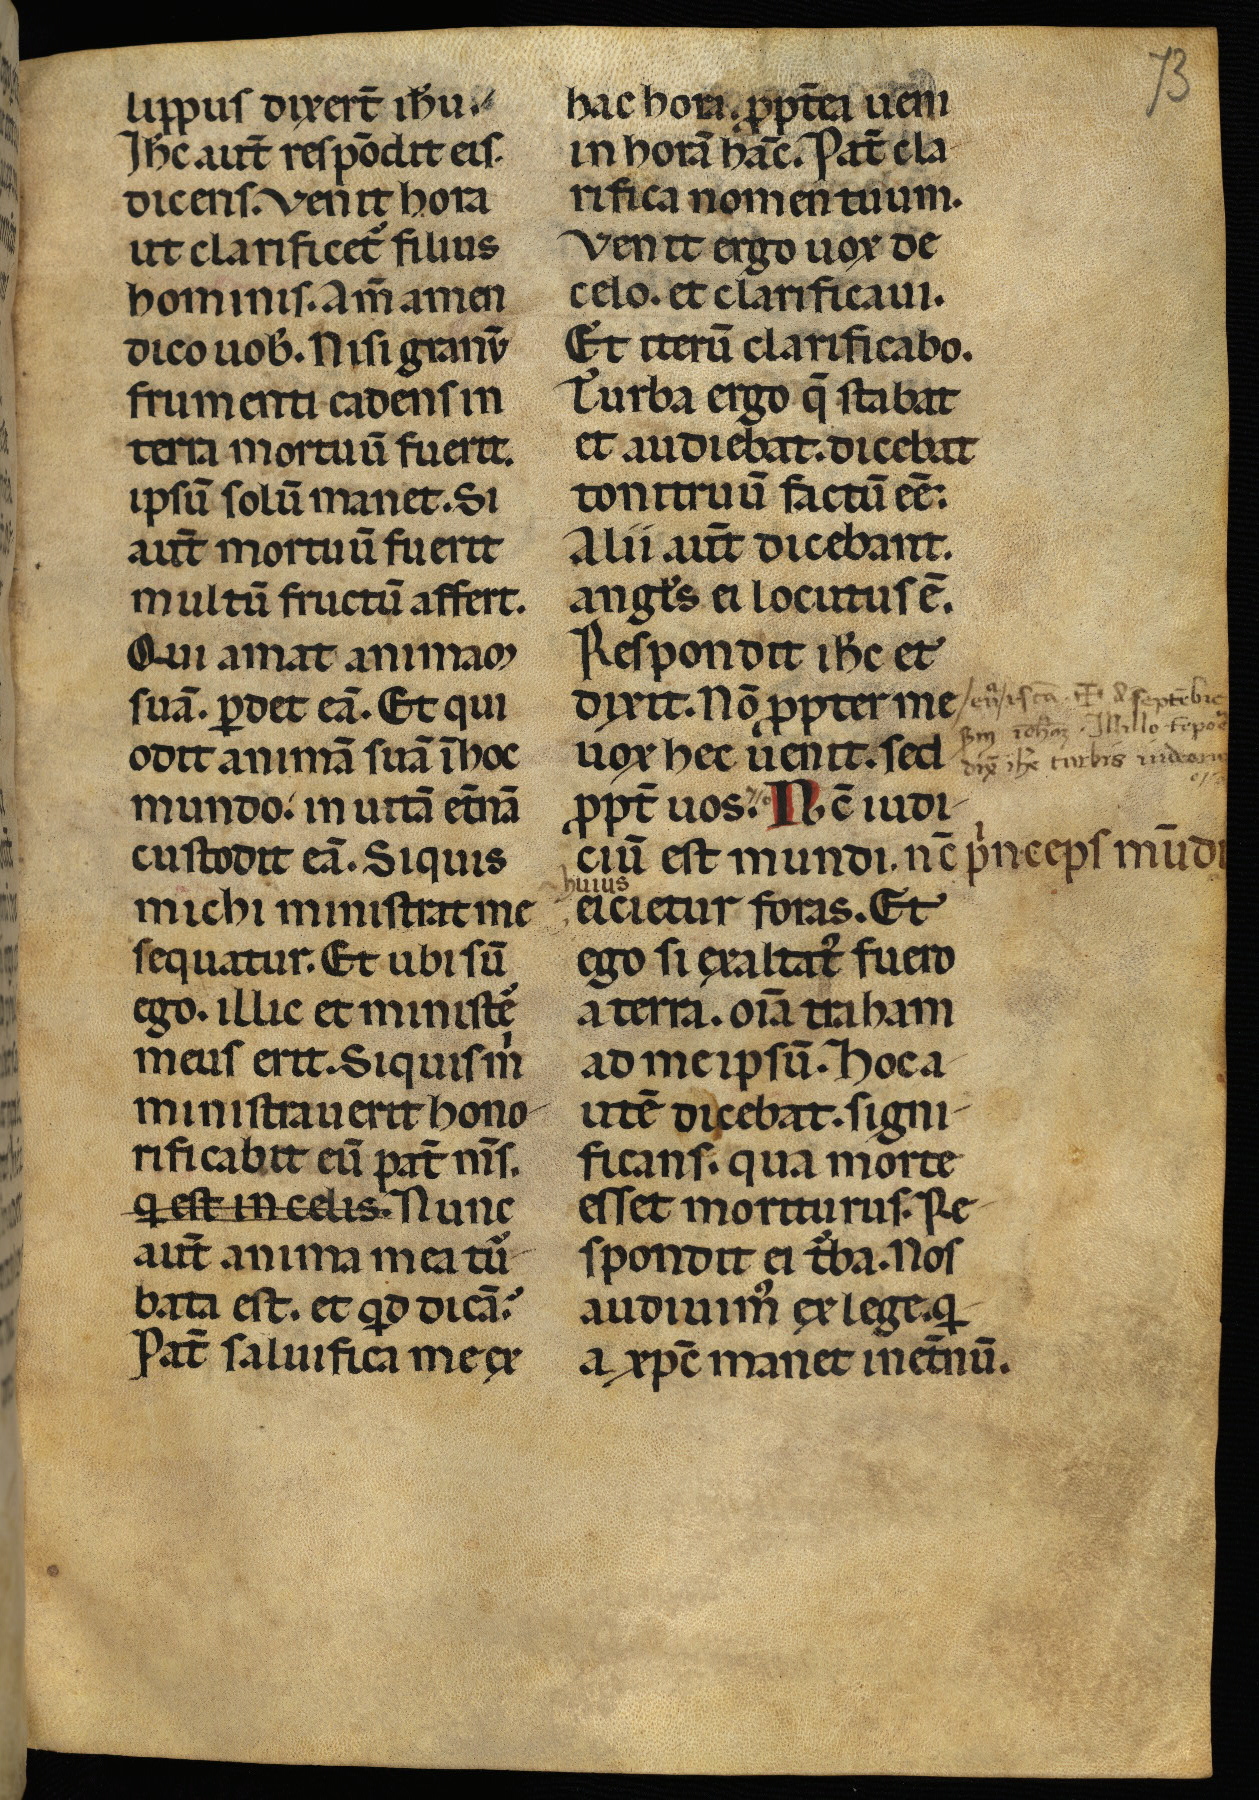 73
lippus dixert̄ ih̄u.
Ih̄c aut̄ respōdit eis.
dicens. Venit hora
ut clarificet᷑ filius
hominis. Am̄ amen
dico uob̾. Nisi granū
frumenti cadens in
terra mortuū fuerit.
ipsū solū manet. Si
aut̄ mortuū fuerit
multū fructū affert.
Qui amat animam
suā. ꝑdet eā. Et qui
odit animā suā ī hoc
mundo. in uitā et̄nā
custodit eā. Siquis
michi ministrat me
sequatur. Et ubi sū
ego. illic et minist᷑
meus erit. Siquis mͥ
ministrauerit hono
rificabit eū pat̄ m̄s.
q̄ est in celis. Nunc
aut̄ anima mea tu᷑
bata est. et qd dicā.
Pat̄ saluifica me ex
hac hora. ꝓpt̄ea ueni
in horā hāc. Pat̄ cla
rifica nomen tuum.
Venit ergo uox de
celo. et clarificaui.
Et iterū clarificabo.
Turba ergo q̄ stabat
et audiebat. dicebat
tonitruū factū eē.
Alii aut̄ dicebant.
angl̄s ei locutus ē.
Respondit ih̄c et
dixit. Nō ꝓpter me
uox hec uenit. sed
ꝓpt̄ uos. Nc̄ iudi
ciū est mundi. nc̄ pͥnceps mūdi
huius
eicietur foras. Et
ego si exaltat᷒ fuero
a terra. oīa traham
ad me ipsū. Hoc a
utē dicebat. signi
ficans. qua morte
esset moriturus. Re
spondit ei t᷑ba. Nos
audiuim᷒ ex lege. q
a xp̄c manet in et̄nū.
septēbr
Jn illo tēpoꝛe
dix̄ ih̄c turbis iudeoru